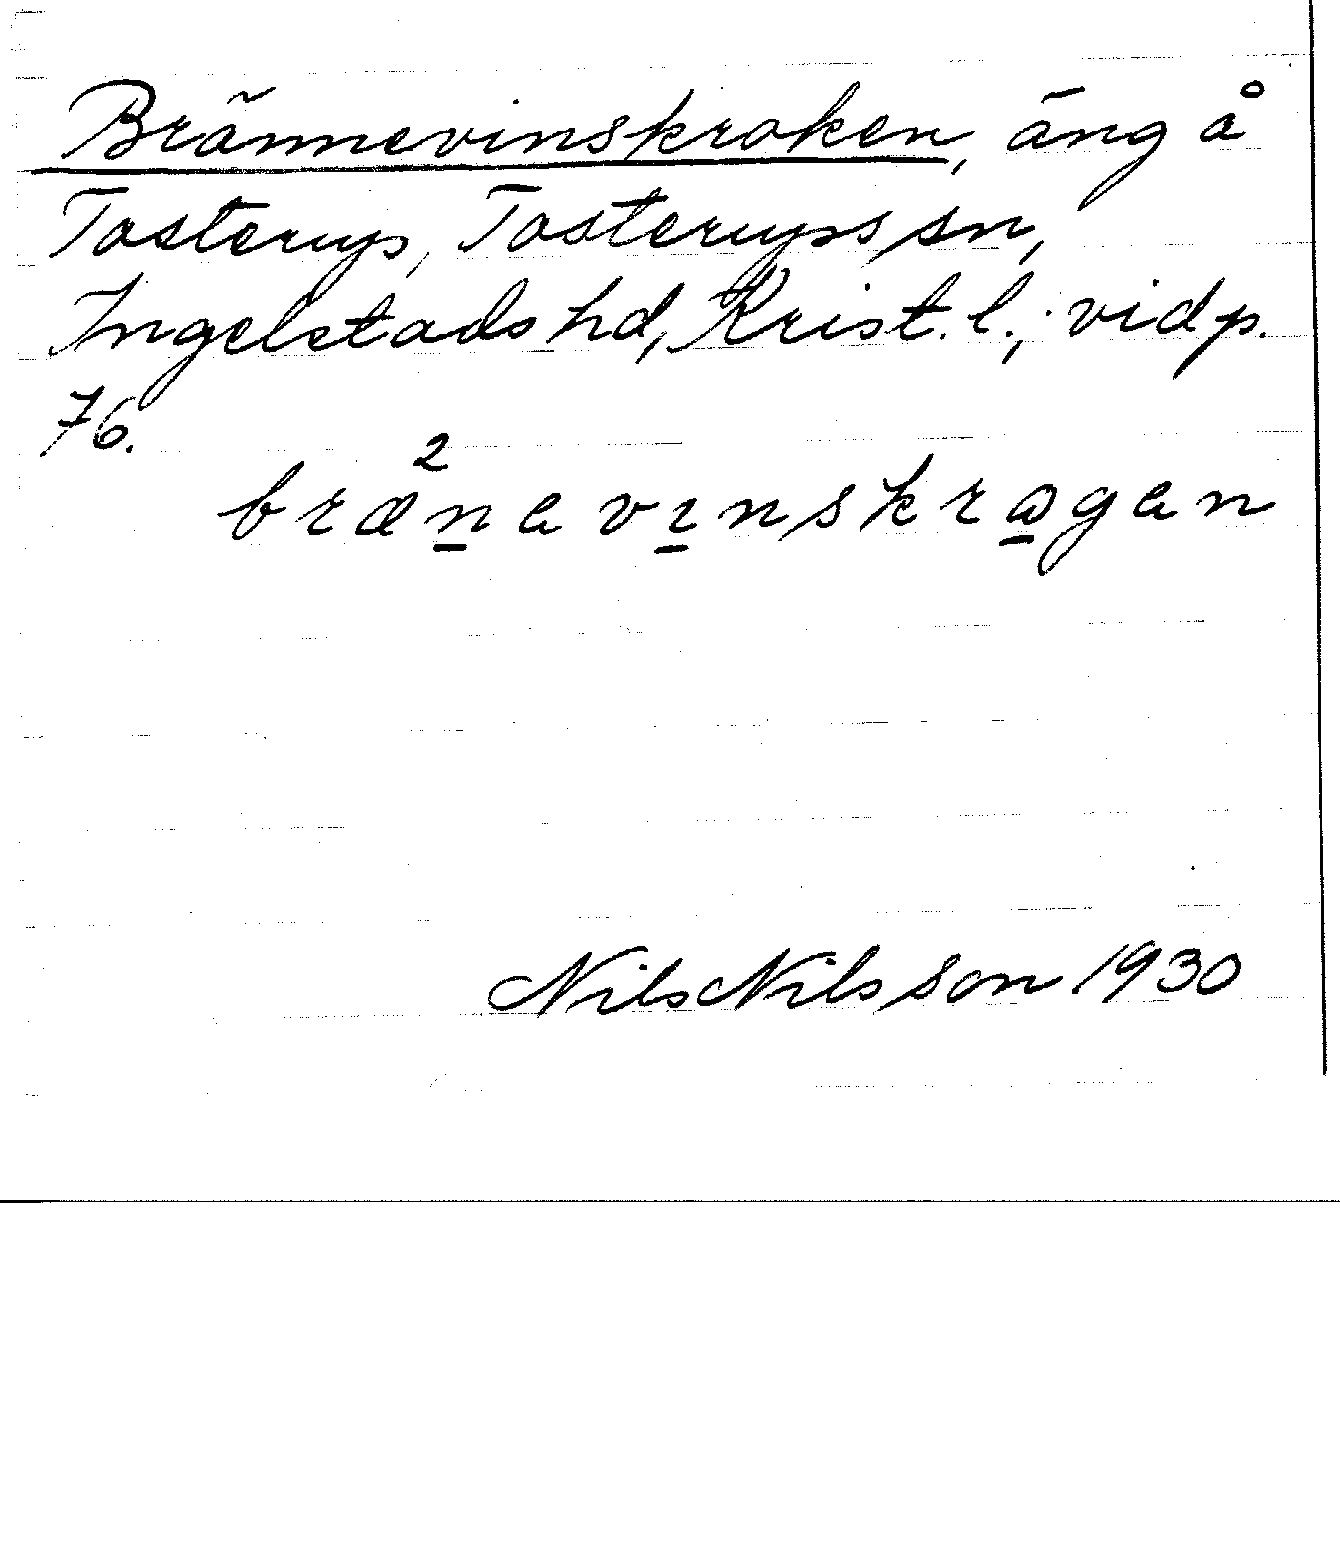 Brännevinskroken, äng å
Tosterup, Tosterups sn,
Ingelstads hd, Krist. l.; vid p.
76.
bræ²n̲ev̲ɪnskrɷ̲gen
Nils Nilsson 1930